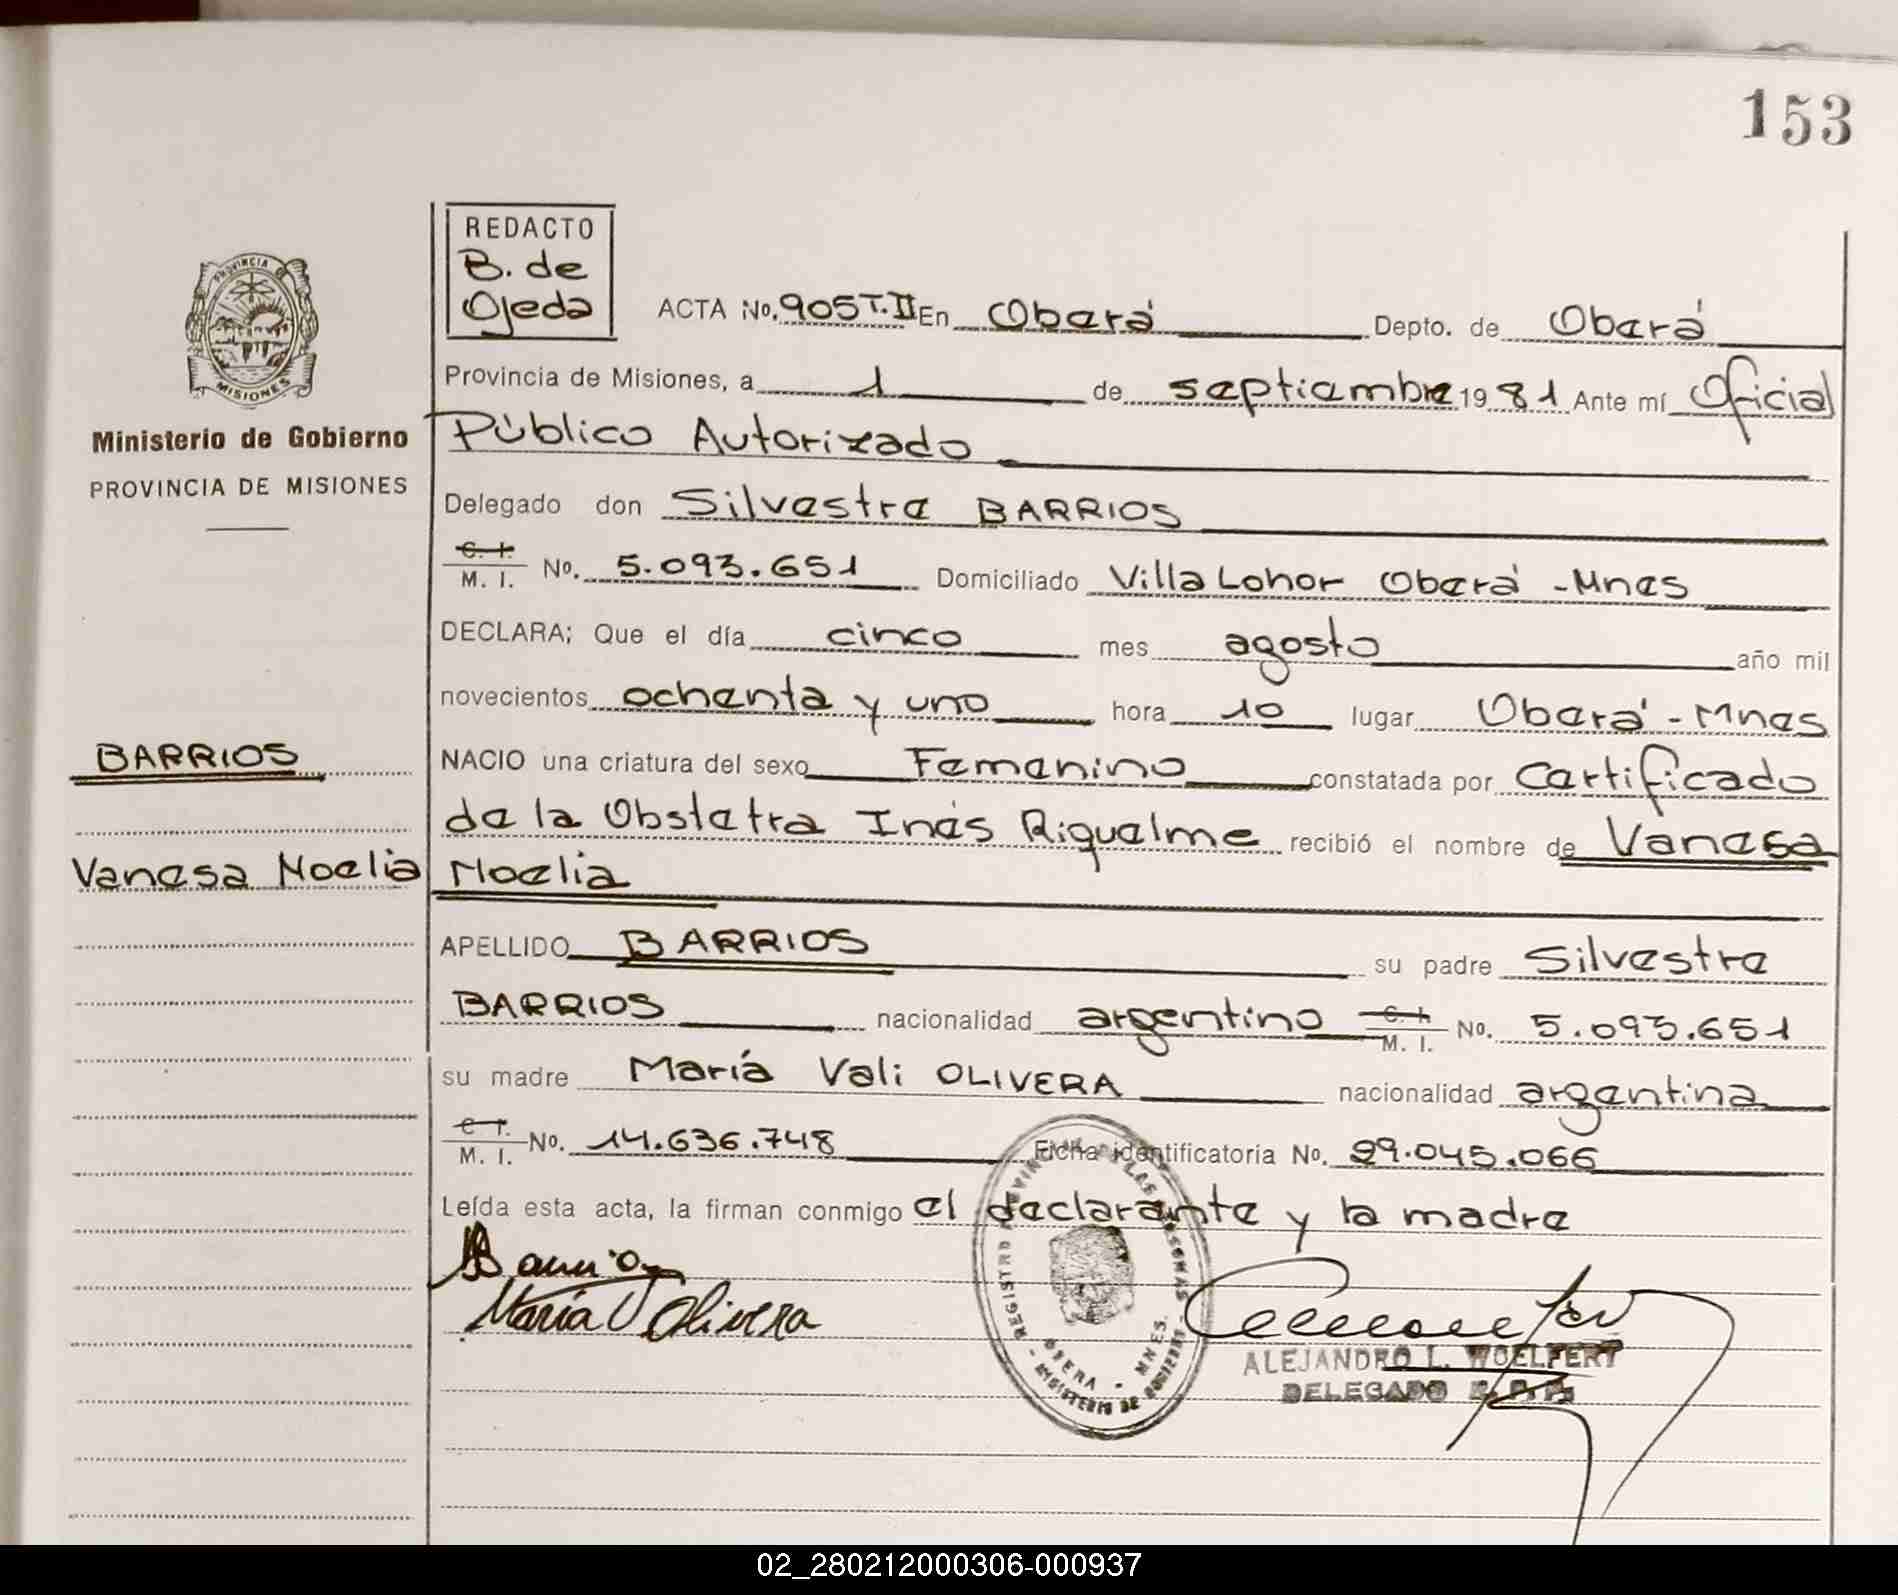 153
REDACTO
B. de
Ojeda
ACTA No. 905 T.II En Oberá Depto. de Oberá
PROVINCIA DE
MISIONES
Provincia de Misiones, a 1 de septiembre 1981 Ante mí Oficial
Ministerio de Gobierno
Público Autorizado
PROVINCIA DE MISIONES
Delegado don Silvestre BARRIOS
C. I.
M. I. No. 5.093.651 Domiciliado Villa Lohor Oberá -Mnes
DECLARA; Que el día cinco mes agosto año mil
novecientos ochenta y uno hora 10 lugar Oberá - Mnes
BARRIOS
NACIO una criatura del sexo Femenino constatada por Certificado
de la Obstetra Inés Riquelme recibió el nombre de Vanesa
Vanesa Noelia
Noelia
APELLIDO BARRIOS su padre Silvestre
BARRIOS nacionalidad argentino C. I. M. I. No. 5.093.651
su madre María Veli OLIVERA nacionalidad argentina
C. I.
M. I. No. 14.636.748 Ficha identificatoria No. 29.045.066
Leída esta acta, la firman conmigo el declarante y la madre
Barrios
María V Olivera
REGISTRO PROVINCIAL DE LAS PERSONAS
OBERA - MNES.
MINISTERIO DE GOBIERNO
ALEJANDRO L. WOELFERT
DELEGADO R. P. P.
02_280212000306-000937